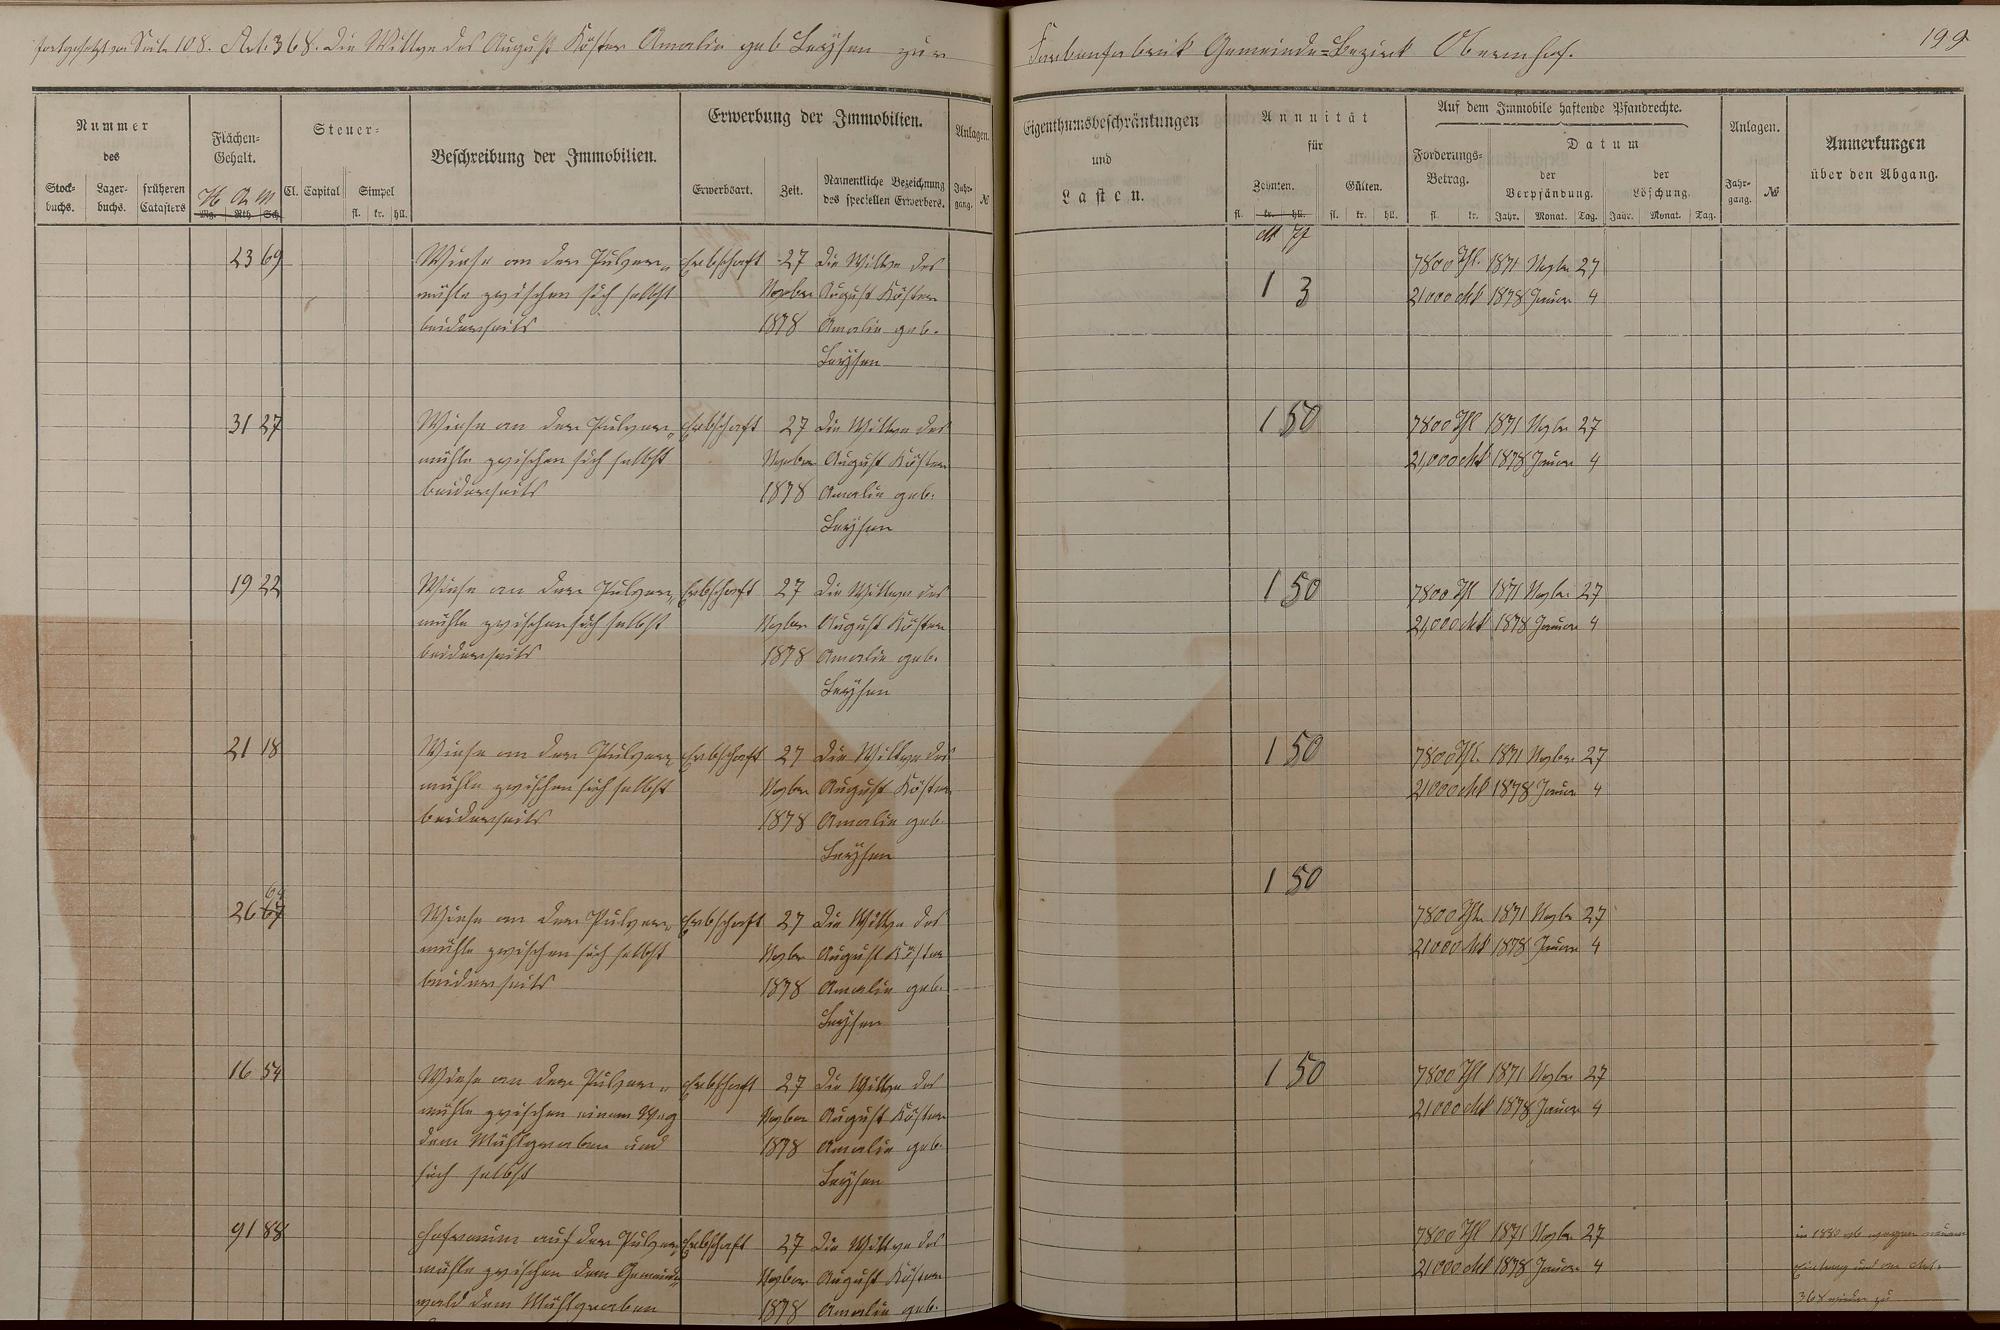 fortgesetzt von Seite 108. Art. 368. Die Wittwe des August Köster Amalie geb Leysen zur Farbenfabrik Gemeinde-Bezirk Obernhof. 199
Nummer des
Stockbuchs. Lagerbuchs. früheren Catasters
Flächen-Gehalt.
H A M
Mg. Rth. Sch.
Steuer-
Cl. Capital Simpel
fl. kr. hll.
Beschreibung der Immobilien.
Erwerbung der Immobilien.
Erwerbsart. Zeit. Namentliche Bezeichnung des speciellen Erwerbers.
Anlagen.
Jahrgang. №
Eigenthumsbeschränkungen und Lasten.
Annuität für
Zehnten. Gülten.
fl. kr. hll. fl. kr. hll.
M Pf
Auf dem Immobile haftende Pfandrechte.
Forderungs-Betrag. Datum
der Verpfändung. der Löschung.
fl. kr. Jahr. Monat. Tag. Jahr. Monat. Tag.
Anlagen.
Jahrgang. №
Anmerkungen über den Abgang.
23 69 Wiese an der Pulver- Erbschaft 27 Die Wittwe des 1 3 7800 Fl. 1871 Novbr 27
mühle zwischen sich selbst Novber August Köster 21000 M 1878 Januar 4
beiderseits 1878 Amalie geb.
Leysen
31 27 Wiese an der Pulver- Erbschaft 27 Die Wittwe des 1 50 7800 Fl 1871 Novbr 27
mühle zwischen sich selbst Novber August Köster 21,000 M 1878 Januar 4
beiderseits 1878 Amalie geb.
Leysen
19 22 Wiese an der Pulver- Erbschaft 27 Die Wittwe des 1 50 7800 Fl 1871 Novbr 27
mühle zwischen sich selbst Novber August Köster 21,000 M 1878 Januar 4
beiderseits 1878 Amalie geb.
Leysen
21 18 Wiese an der Pulver- Erbschaft 27 Die Wittwe des 1 50 7800 Fl. 1871 Novber 27
mühle zwischen sich selbst Novber August Köster 21000 M 1878 Januar 4
beiderseits 1878 Amalie geb.
Leysen
1 50
26 67 Wiese an der Pulver- Erbschaft 27 Die Wittwe des 7800 Fl. 1871 Novbr 27
mühle zwischen sich selbst Novbr August Köster 21000 M 1878 Januar 4
beiderseits 1878 Amalie geb.
Leysen
16 54 Wiese an der Pulver- Erbschaft 27 Die Wittwe des 1 50 7800 Fl 1871 Novbr 27
mühle zwischen einem Weg Novber August Köster 21000 M 1878 Januar 4
dem Mühlgraben und 1878 Amalie geb.
sich selbst Leysen
91 88 Hofraum auf der Pulver- Erbschaft 27 Die Wittwe des 7800 Fl 1871 Novbr 27 in 1880 ab wegen
mühle zwischen dem Gemeinde- Novber August Köster 21000 M 1878 Januar 4 und
wald dem Mühlgraben 1878 Amalie geb. 368 wieder zu